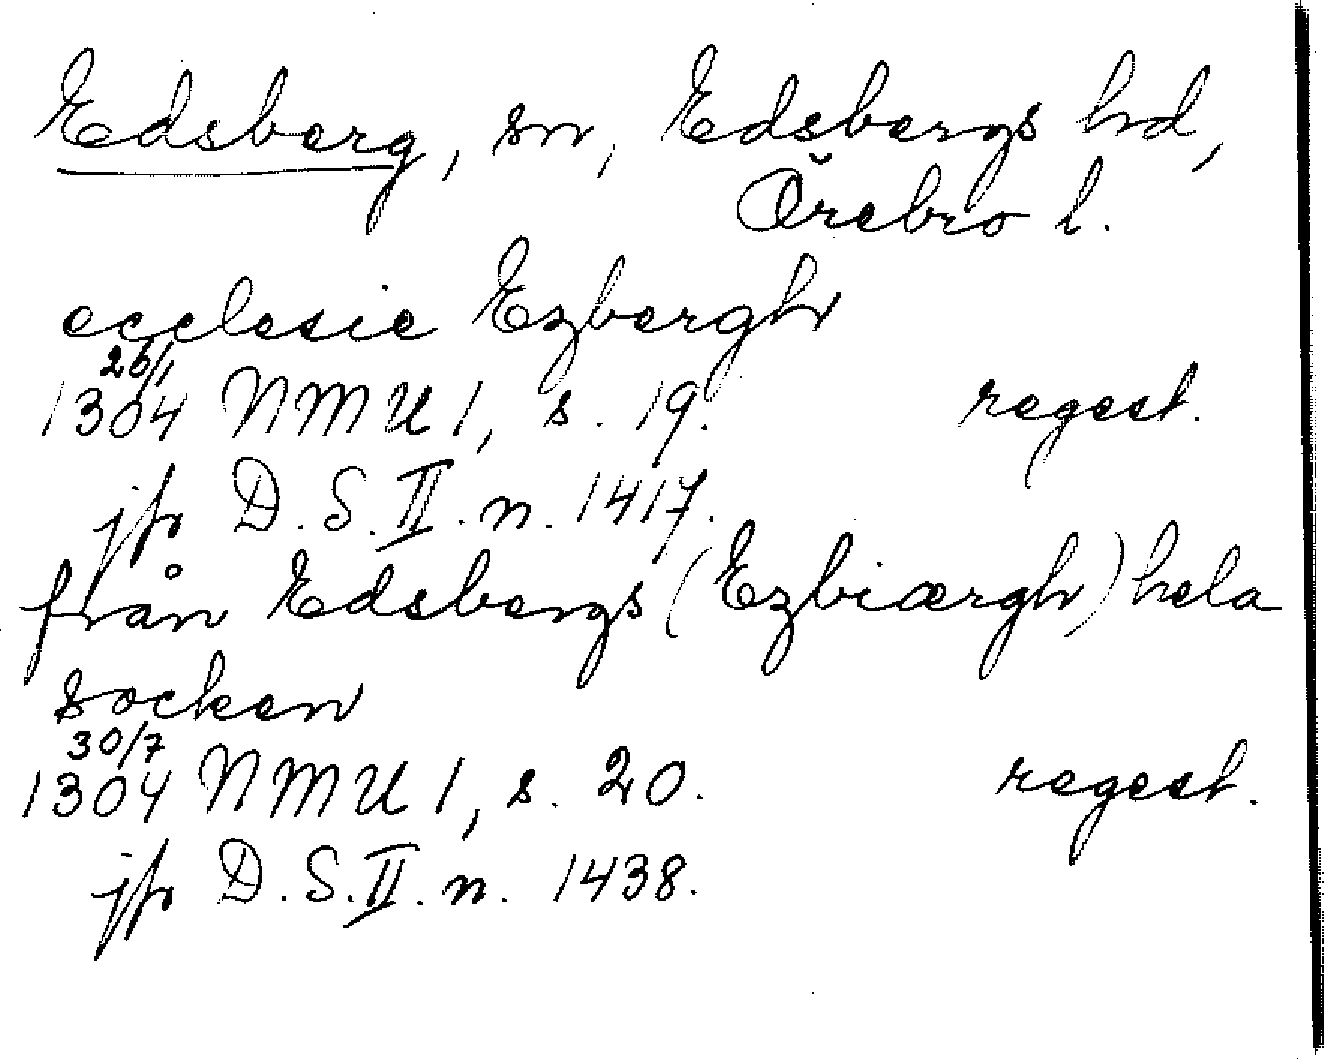 Edsberg, sn, Edsbergs hd,
Örebro l.
ecclesie Ezbergh
26/1
1304 NMU 1, s. 19. regest.
jfr D.S.II. n. 1417.
från Edsbergs (Ezbiærgh) hela
socken
30/7
1304 NMU 1, s. 20. regest.
jfr D.S.II. n. 1438.